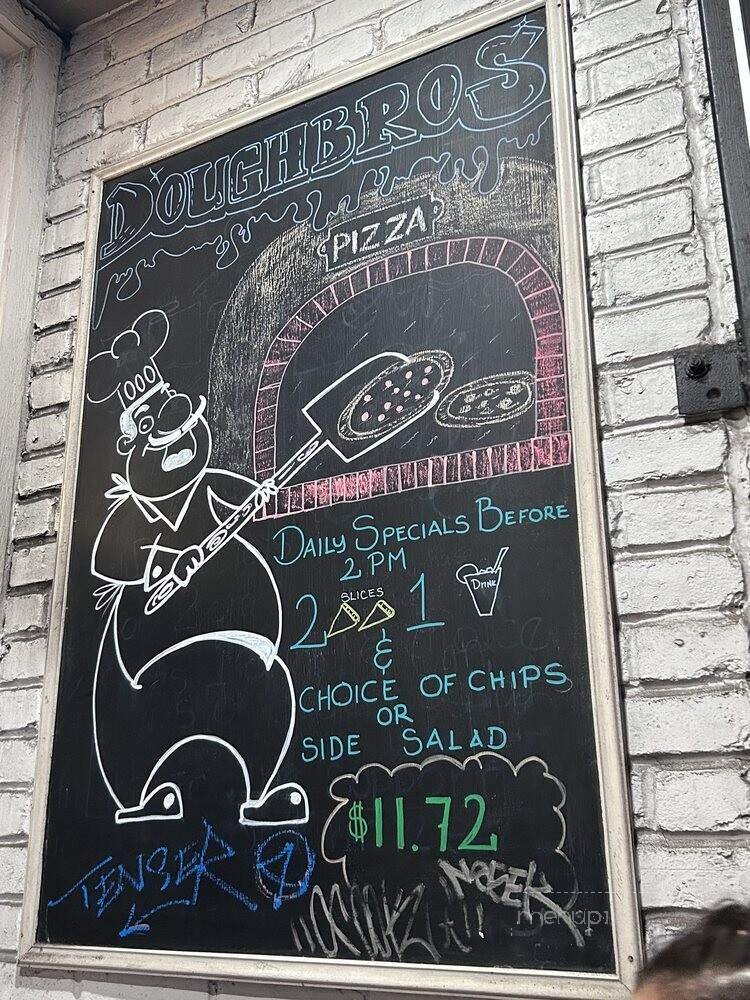 DOUGHBROS
PIZZA
DAILY SPECIALS BEFORE
2 PM
SLICES
2 1 DRINK
&
CHOICE OF CHIPS
OR
SIDE SALAD
$11.72
TENSER
menupix